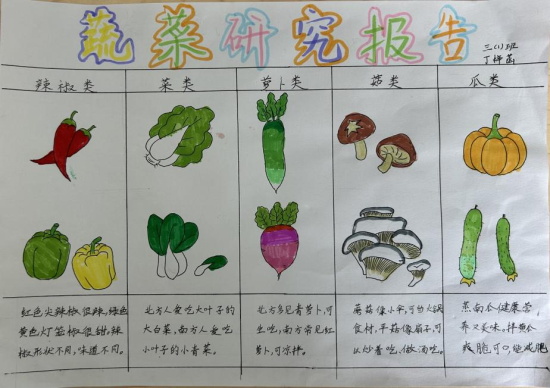 蔬菜研究报告
三(1)班
丁梓菡
辣椒类
菜类
萝卜类
菇类
瓜类
红色尖辣椒很辣,绿色
黄色灯笼椒很甜,辣
椒形状不同,味道不同。
北方人爱吃大叶子的
大白菜,南方人爱吃
小叶子的小青菜。
北方多见青萝卜,可
生吃,南方常见红
萝卜,可凉拌。
蘑菇像小伞,可当火锅
食材,平菇像扇子,可
以炒着吃,做汤吃。
蒸南瓜健康营
养又美味,拌黄瓜
爽脆可口,能减肥